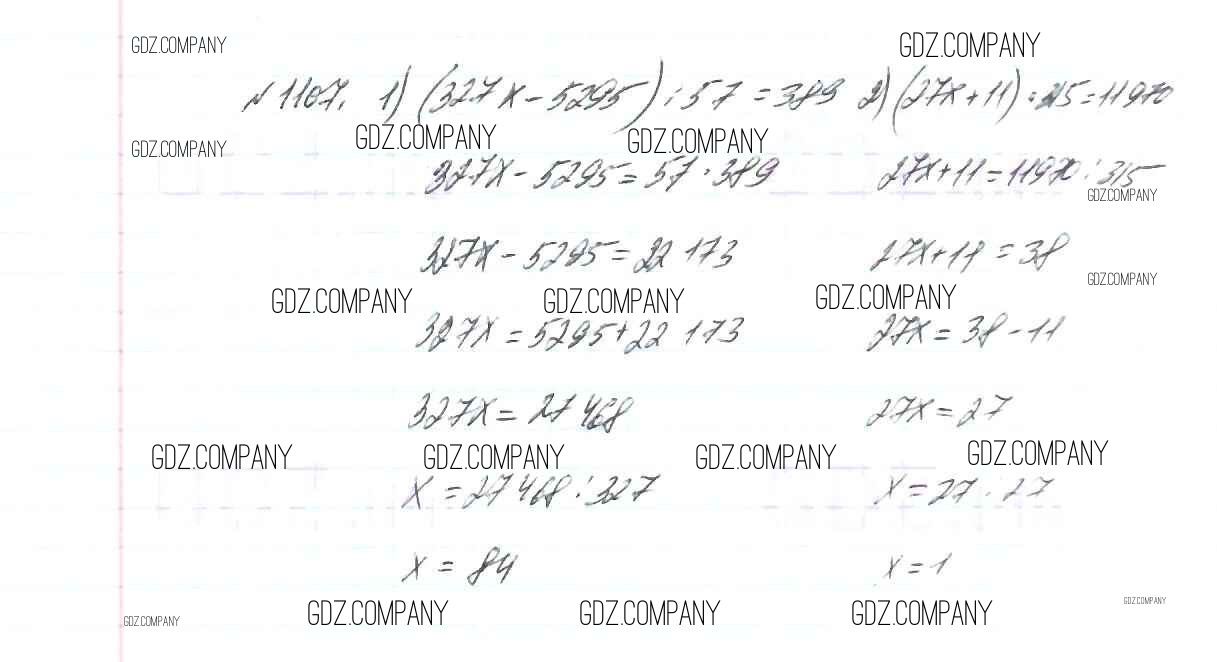 GDZ.COMPANY GDZ.COMPANY
№1107. 1) (327x-5295):57=389 2) (27x+11)·315=11970
GDZ.COMPANY GDZ.COMPANY GDZ.COMPANY
327x-5295=57·389 27x+11=11970:315
GDZ.COMPANY
327x-5295=22 173 27x+11=38
GDZ.COMPANY
GDZ.COMPANY GDZ.COMPANY GDZ.COMPANY
327x=5295+22 173 27x=38-11
327x=27 468 27x=27
GDZ.COMPANY GDZ.COMPANY GDZ.COMPANY GDZ.COMPANY
x=27 468:327 x=27:27
x=84 x=1
GDZ.COMPANY GDZ.COMPANY GDZ.COMPANY GDZ.COMPANY GDZ.COMPANY